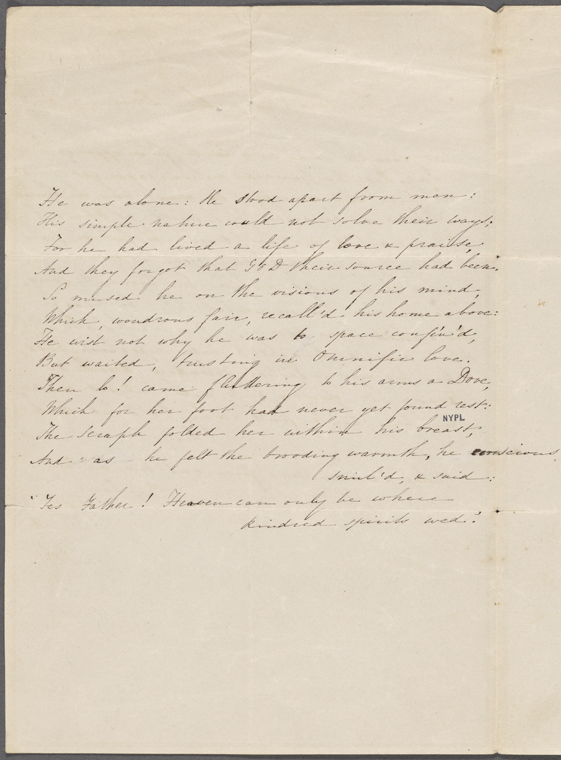 He was alone: He stood apart from men:
His simple nature could not solve their ways,
For he had lived a life of love & praise,
And they forgot that God their source had been.
So mused he on the visions of his mind,
Which, wondrous fair, recall'd his home above:
He wist not why he was to space confin'd,
But waited, trusting in Omnific love.
Then lo! came fluttering to his arms a Dove,
Which for her foot had never yet found rest:
NYPL
The Seraph folded her within his breast,
And as he felt the brooding warmth, he conscious
smil'd, & said:
"Yes Father! Heaven can only be where
kindred spirits wed!"